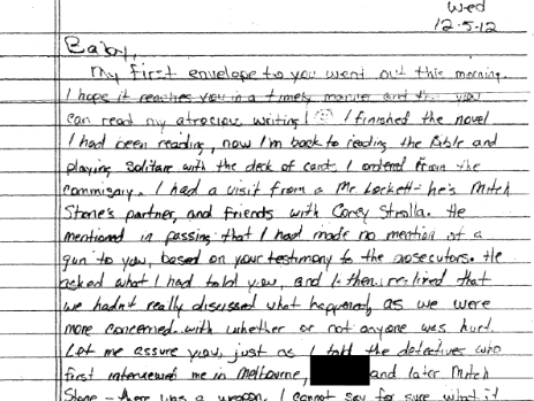 Wed
12-5-12
Baby,
My first envelope to you went out this morning.
I hope it reaches you in a timely manner and that you
can read my atrocious writing! I finished the novel
I had been reading, now I'm back to reading the Bible and
playing Solitare with the deck of cards I ordered from the
commisary. I had a visit from a Mr Lockett - he's Mitch
Stone's partner, and friends with Corey Strolla. He
mentioned in passing that I had made no mention of a
gun to you, based on your testimony to the prosecutors. He
asked what I had told you, and I then realized that
we hadn't really discussed what happened, as we were
more concerned with whether or not anyone was hurt.
Let me assure you, just as I told the detectives who
first interviewed me in Melbourne, and later Mitch
Stone - there was a weapon. I cannot say for sure what it